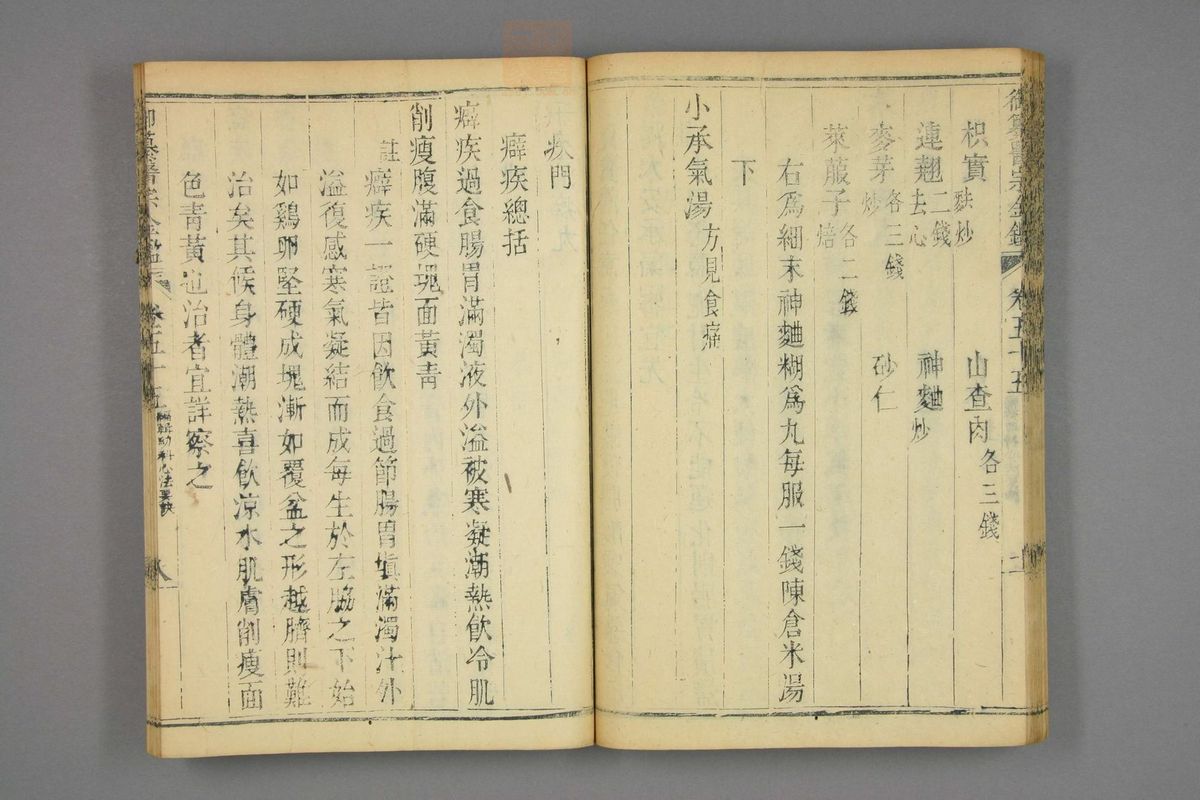 枳實 麩炒 山查肉 各三錢
連翹 二錢去心 神麯 炒
麥芽 炒各三錢 砂仁
萊菔子 焙各二錢
右爲細末神麯糊爲丸每服一錢陳倉米湯
下
小承氣湯 方見食痛
疾門
癖疾總括
癖疾過食腸胃滿濁液外溢被寒凝潮熱飲冷肌
削瘦腹滿硬塊面黃青
註 癖疾一證皆因飲食過節腸胃塡滿濁汁外
溢復感寒氣凝結而成每生於左脇之下始
如鷄卵堅硬成塊漸如覆盆之形越臍則難
治矣其候身體潮熱喜飲涼水肌膚削瘦面
色青黃也治者宜詳察之
御纂醫宗金鑑 卷五十五 編輯幼科心法要訣 八